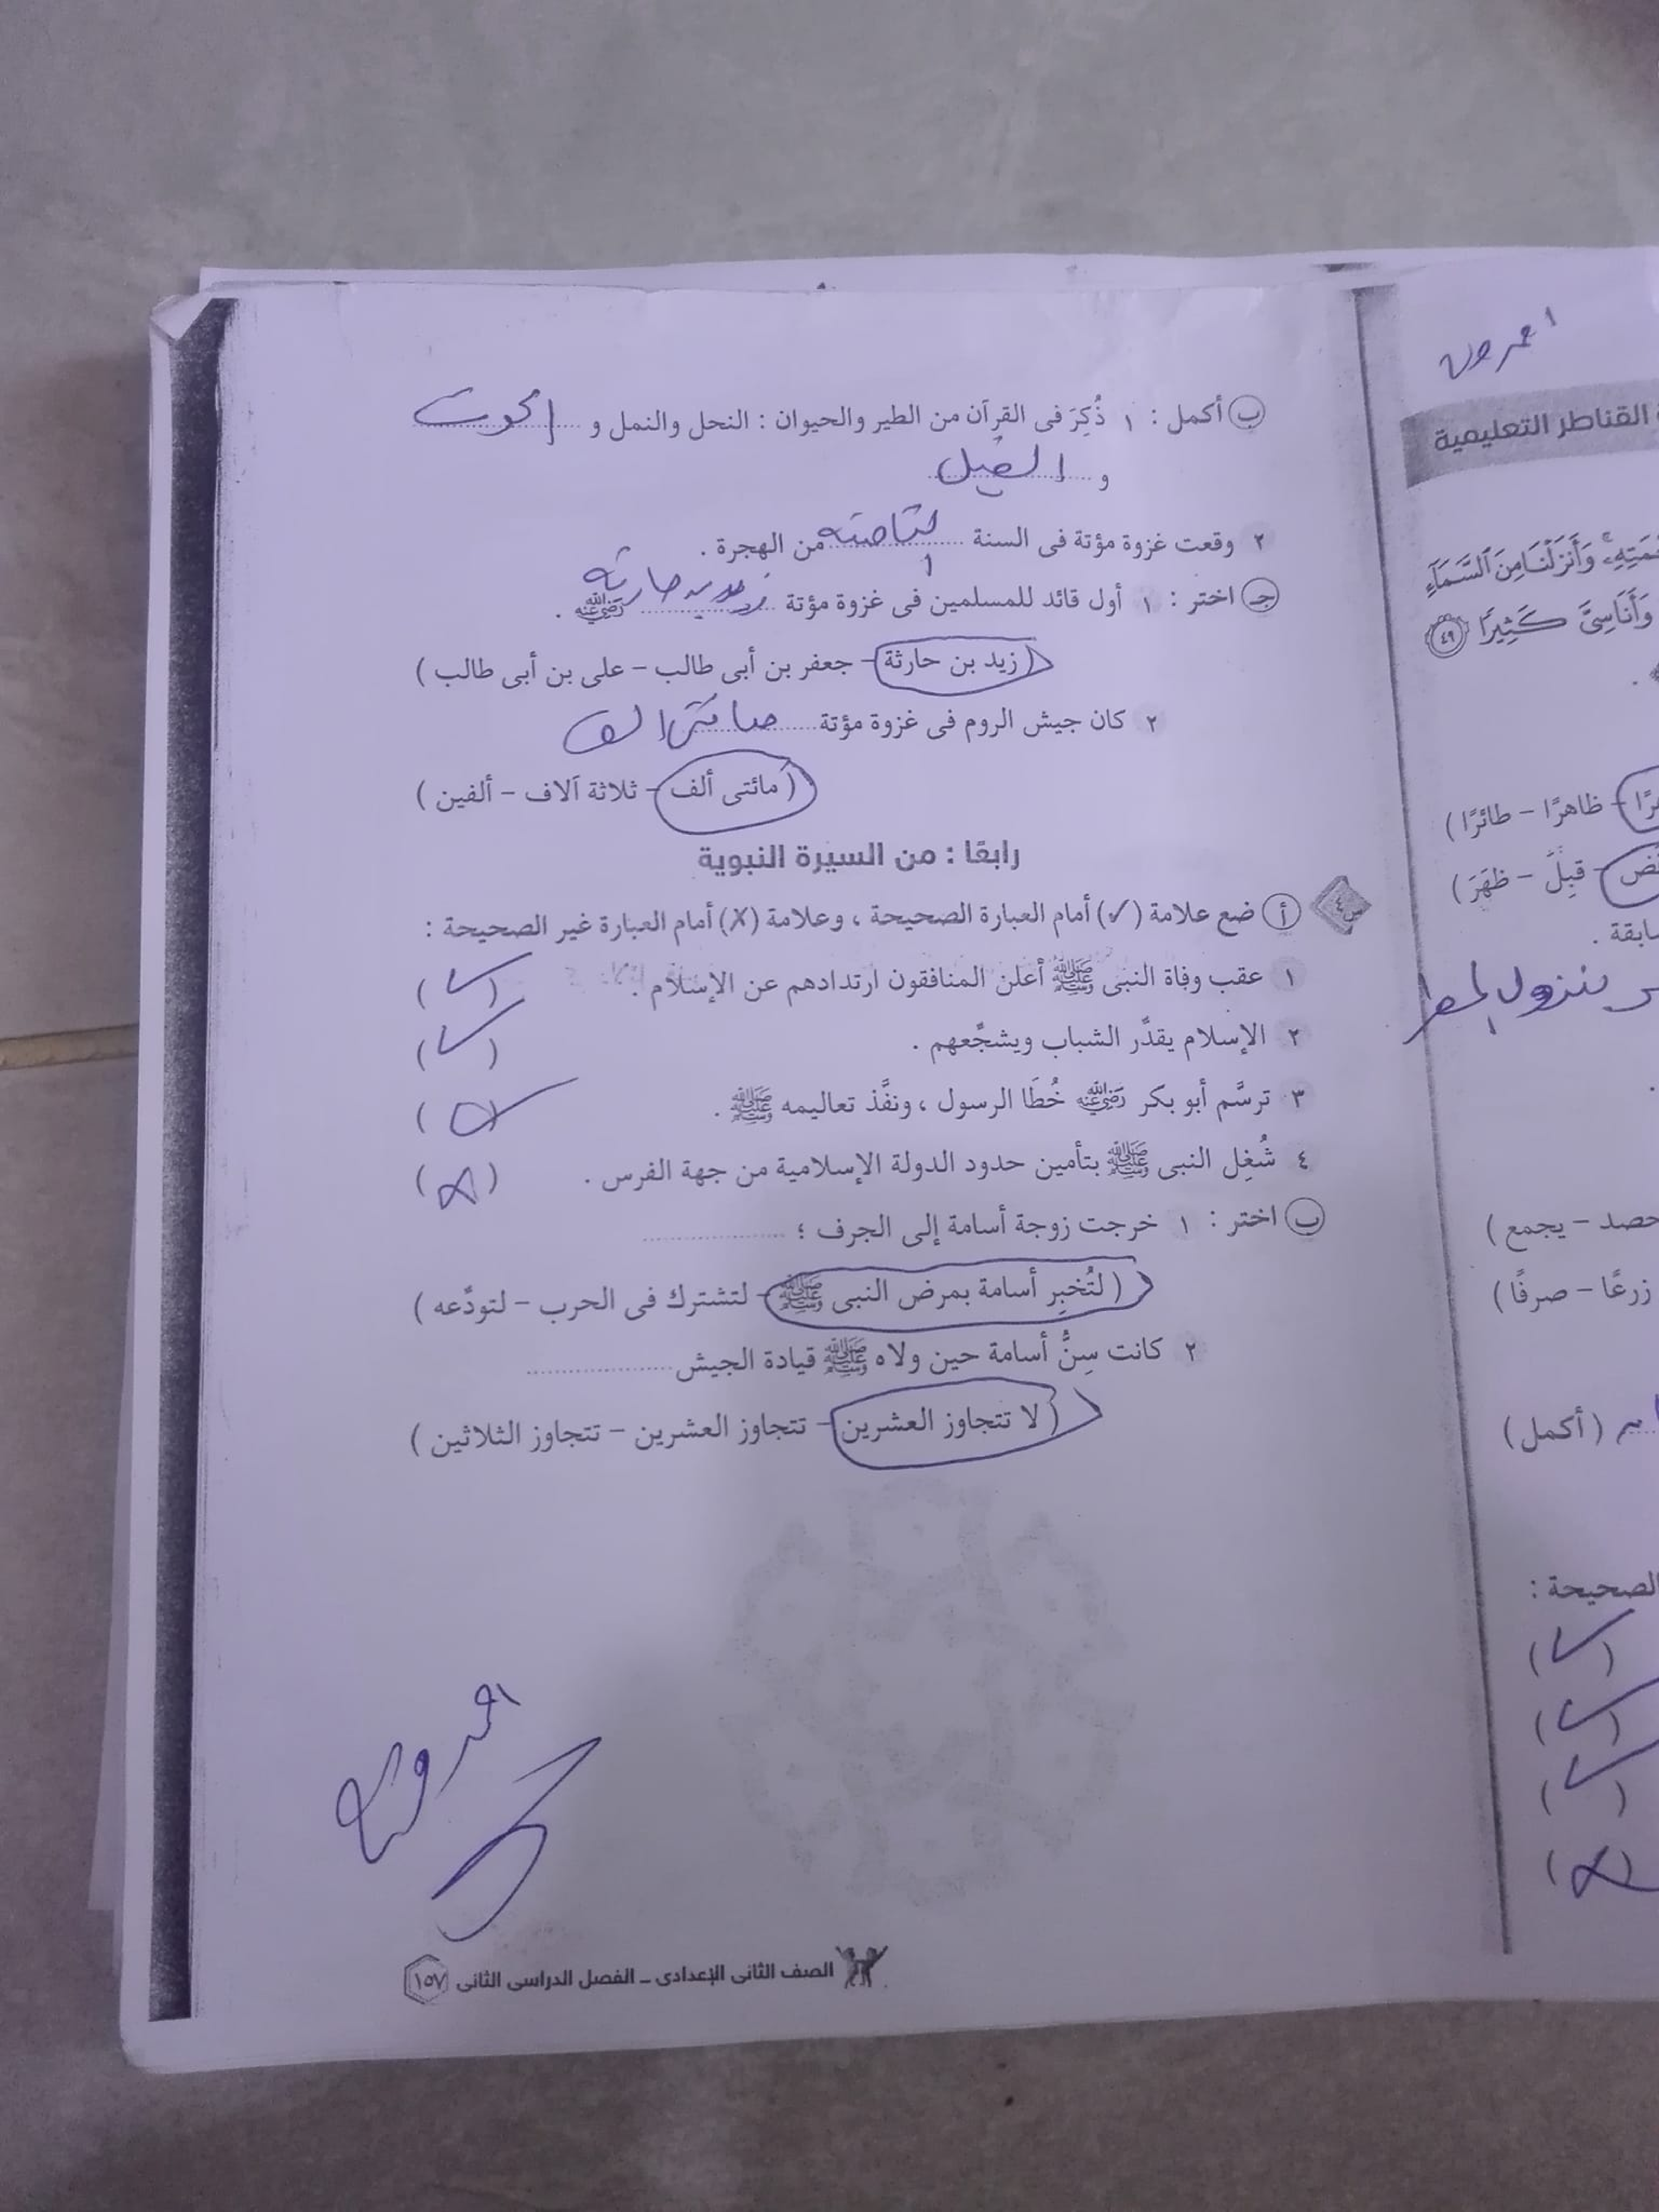 ب أكمل : ١ ذُكِرَ فى القرآن من الطير والحيوان : النحل والنمل و الحوت
و الفيل
٢ وقعت غزوة مؤتة فى السنة الثامنة من الهجرة .
جـ اختر : ١ أول قائد للمسلمين فى غزوة مؤتة زيد بن حارثة رضي الله عنه .
( زيد بن حارثة – جعفر بن أبى طالب – على بن أبى طالب )
٢ كان جيش الروم فى غزوة مؤتة مائتى الف
( مائتى ألف – ثلاثة آلاف – ألفين )
رابعًا : من السيرة النبوية
س٤ أ ضع علامة (✓) أمام العبارة الصحيحة ، وعلامة (✗) أمام العبارة غير الصحيحة :
١ عقب وفاة النبى ﷺ أعلن المنافقون ارتدادهم عن الإسلام . (✓)
٢ الإسلام يقدِّر الشباب ويشجِّعهم . (✓)
٣ ترسَّم أبو بكر رضي الله عنه خُطَا الرسول ، ونفَّذ تعاليمه ﷺ . ( )
٤ شُغِل النبى ﷺ بتأمين حدود الدولة الإسلامية من جهة الفرس . (✗)
ب اختر : ١ خرجت زوجة أسامة إلى الجرف ؛ ..................
( لتُخبِر أسامة بمرض النبى ﷺ – لتشترك فى الحرب – لتودِّعه )
٢ كانت سِنُّ أسامة حين ولاه ﷺ قيادة الجيش ..................
( لا تتجاوز العشرين – تتجاوز العشرين – تتجاوز الثلاثين )
الصف الثانى الإعدادى – الفصل الدراسى الثانى ١٥٧
القناطر التعليمية
وَأَنزَلْنَا مِنَ ٱلسَّمَآءِ
وَأَنَاسِىَّ كَثِيرًا ٤٩
– ظاهرًا – طائرًا )
– قبِلَ – ظهَرَ )
حصد – يجمع )
زرعًا – صرفًا )
( أكمل )
الصحيحة :
(✓)
(✓)
(✓)
(✗)